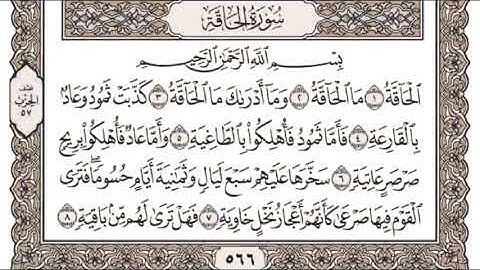 سُورَةُ الحَاقَّةِ
بِسْمِ اللَّهِ الرَّحْمَٰنِ الرَّحِيمِ
نصف
الحزب
٥٧
الْحَاقَّةُ ١ مَا الْحَاقَّةُ ٢ وَمَا أَدْرَىٰكَ مَا الْحَاقَّةُ ٣ كَذَّبَتْ ثَمُودُ وَعَادٌ
بِالْقَارِعَةِ ٤ فَأَمَّا ثَمُودُ فَأُهْلِكُوا بِالطَّاغِيَةِ ٥ وَأَمَّا عَادٌ فَأُهْلِكُوا بِرِيحٍ
صَرْصَرٍ عَاتِيَةٍ ٦ سَخَّرَهَا عَلَيْهِمْ سَبْعَ لَيَالٍ وَثَمَٰنِيَةَ أَيَّامٍ حُسُومًا ۖ فَتَرَى
الْقَوْمَ فِيهَا صَرْعَىٰ كَأَنَّهُمْ أَعْجَازُ نَخْلٍ خَاوِيَةٍ ٧ فَهَلْ تَرَىٰ لَهُم مِّنۢ بَاقِيَةٍ ٨
٥٦٦